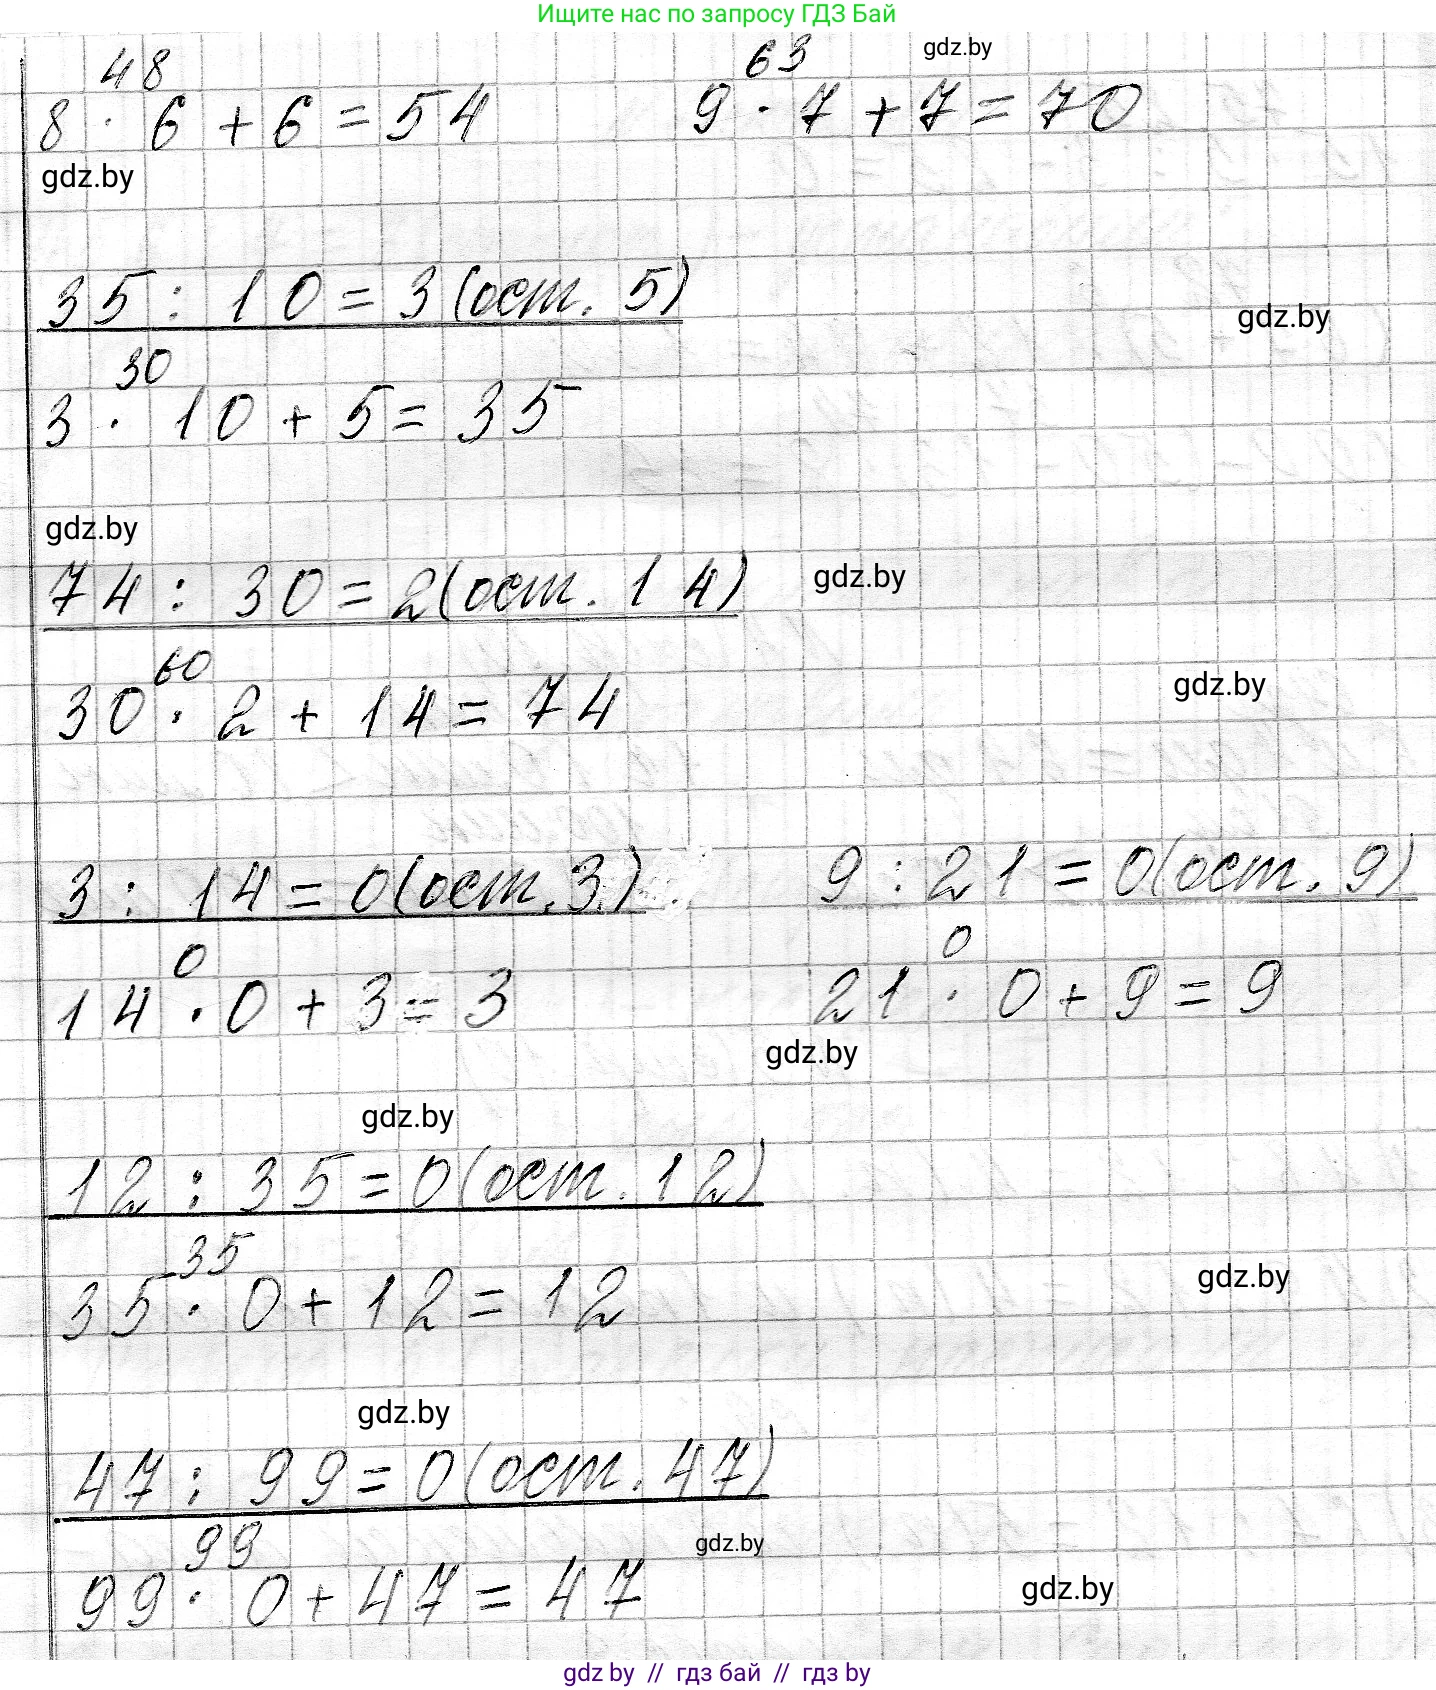 Ищите нас по запросу ГДЗ Бай
48 63 gdz.by
8 · 6 + 6 = 54 9 · 7 + 7 = 70
gdz.by
35 : 10 = 3 (ост. 5)
gdz.by
30
3 · 10 + 5 = 35
gdz.by
74 : 30 = 2 (ост. 14) gdz.by
60 gdz.by
30 · 2 + 14 = 74
3 : 14 = 0 (ост. 3) 9 : 21 = 0 (ост. 9)
0 0
14 · 0 + 3 = 3 21 · 0 + 9 = 9
gdz.by
gdz.by
12 : 35 = 0 (ост. 12)
35 gdz.by
35 · 0 + 12 = 12
gdz.by
47 : 99 = 0 (ост. 47)
99 gdz.by
99 · 0 + 47 = 47 gdz.by
gdz by // гдз бай // гдз by